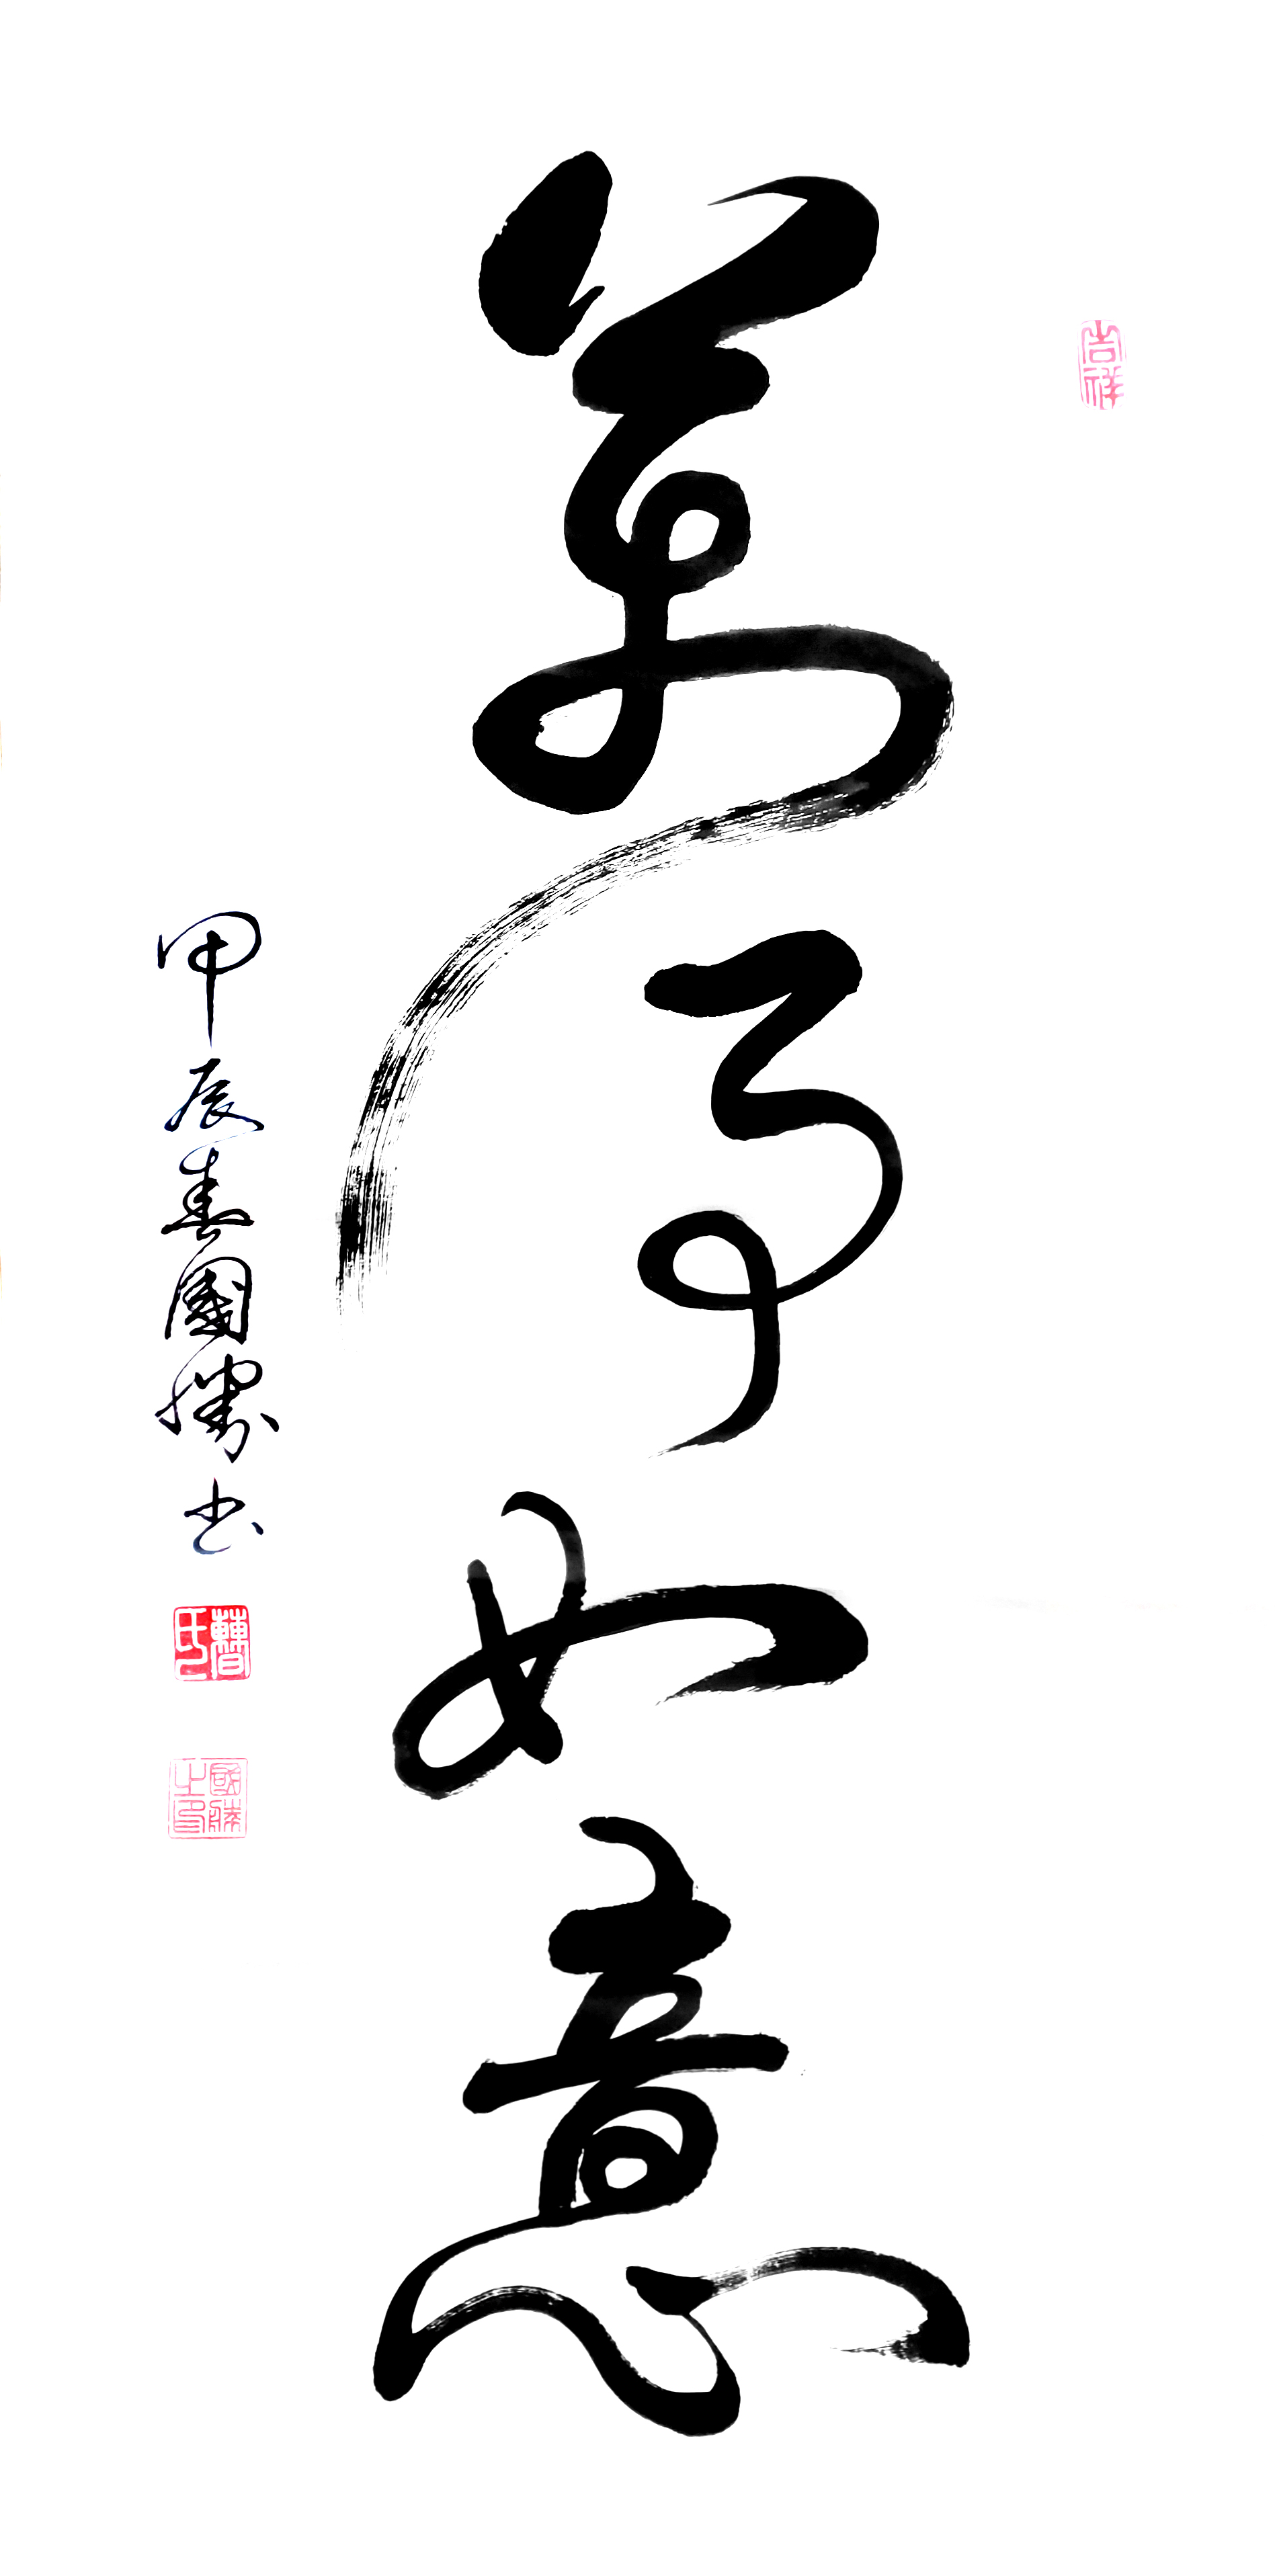 吉祥
萬事如意
甲辰春國勝書
曹氏
國勝之印